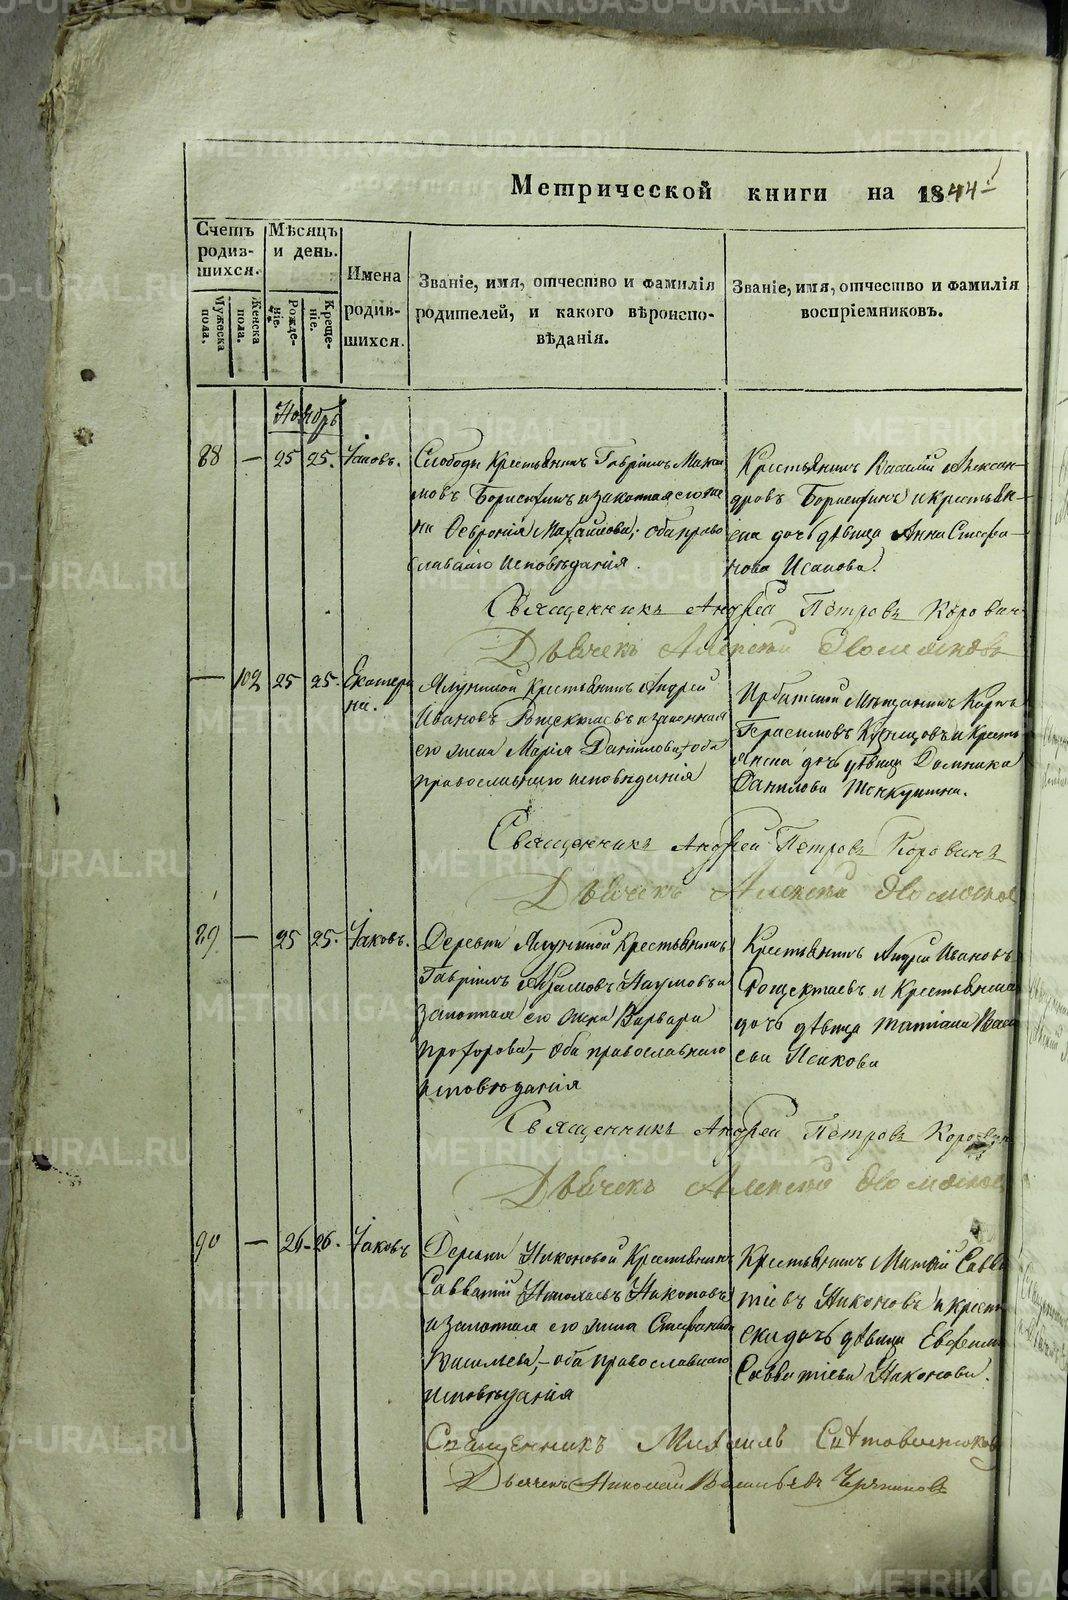 Метрической книги на 1844
Счетъ родив-шихся.
Мѣсяцъ и день.
Имена родив-шихся.
Званіе, имя, отчество и фамилія родителей, и какого вѣроиспо-вѣданія.
Званіе, имя, отчество и фамилія воспріемниковъ.
Мужеска пола.
Женска пола.
Рожде-ніе.
Креще-ніе.
Ноябрь
88 — 25 25. Іаковъ.
Слободы Крестьянинъ Гавріилъ Макси
мовъ и законная его же
на Ѳевронія Михайлова; оба право
славнаго исповѣданія.
Крестьянинъ Василій Алексан-
дровъ и крестьян-
ска дочь дѣвица Анна Стефа-
нова Исакова.
Священникъ Андрей Петровъ Коровинъ
Дьячекъ Алексей
— 102 25 25. Екатери
на.
Ялуниной Крестьянинъ Андрей
Ивановъ и законная
его жена Марія Данилова, оба
православнаго исповѣданія
Ирбитской Мѣщанинъ Карпъ
Герасимовъ Кузнецовъ и Кресть
янска дочь дѣвица Домника
Данилова
Священникъ Андрей Петровъ Коровинъ
Дьячекъ Алексей
89 — 25 25. Іаковъ.
Деревни Ялуниной Крестьянинъ
Гавріилъ Абрамовъ Наумовъ и
законная его жена Варвара
Прохорова, — оба православнаго
исповѣданія
Крестьянинъ Андрей Ивановъ
и Крестьянска
дочь дѣвица Татіана
Исакова
Священникъ Андрей Петровъ Коровин
Дьячекъ Алексей
90 — 26 - 26. Іаковъ
Деревни Никоновой Крестьянинъ
Савватій Николаевъ Никоновъ
и законная его жена Стефанида
Васильева, — оба православнаго
исповѣданія
Крестьянинъ Савва
тіевъ Никоновъ и крест
ска дочь дѣвица Евфимія
Савватіева Никонова.
Священникъ Михаилъ
Дьячекъ Николай Васильевъ
METRIKI.GASO-URAL.RU